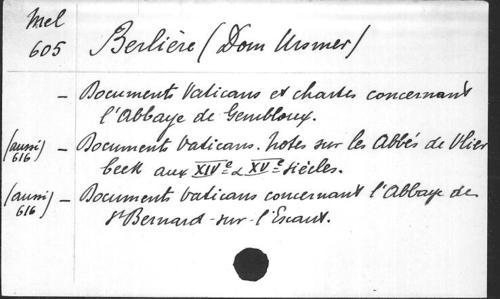 Mel
605
Berlière (Dom Ursmer)
— Documents Vaticans et chartes concernant
l'Abbaye de Gembloux.
(aussi 616) — Documents Vaticans. Notes sur les Abbés de Vlier
beek aux XIVe & XVe siècles.
(aussi 616) — Documents Vaticans concernant l'Abbaye de
St Bernard-sur-l'Escaut.